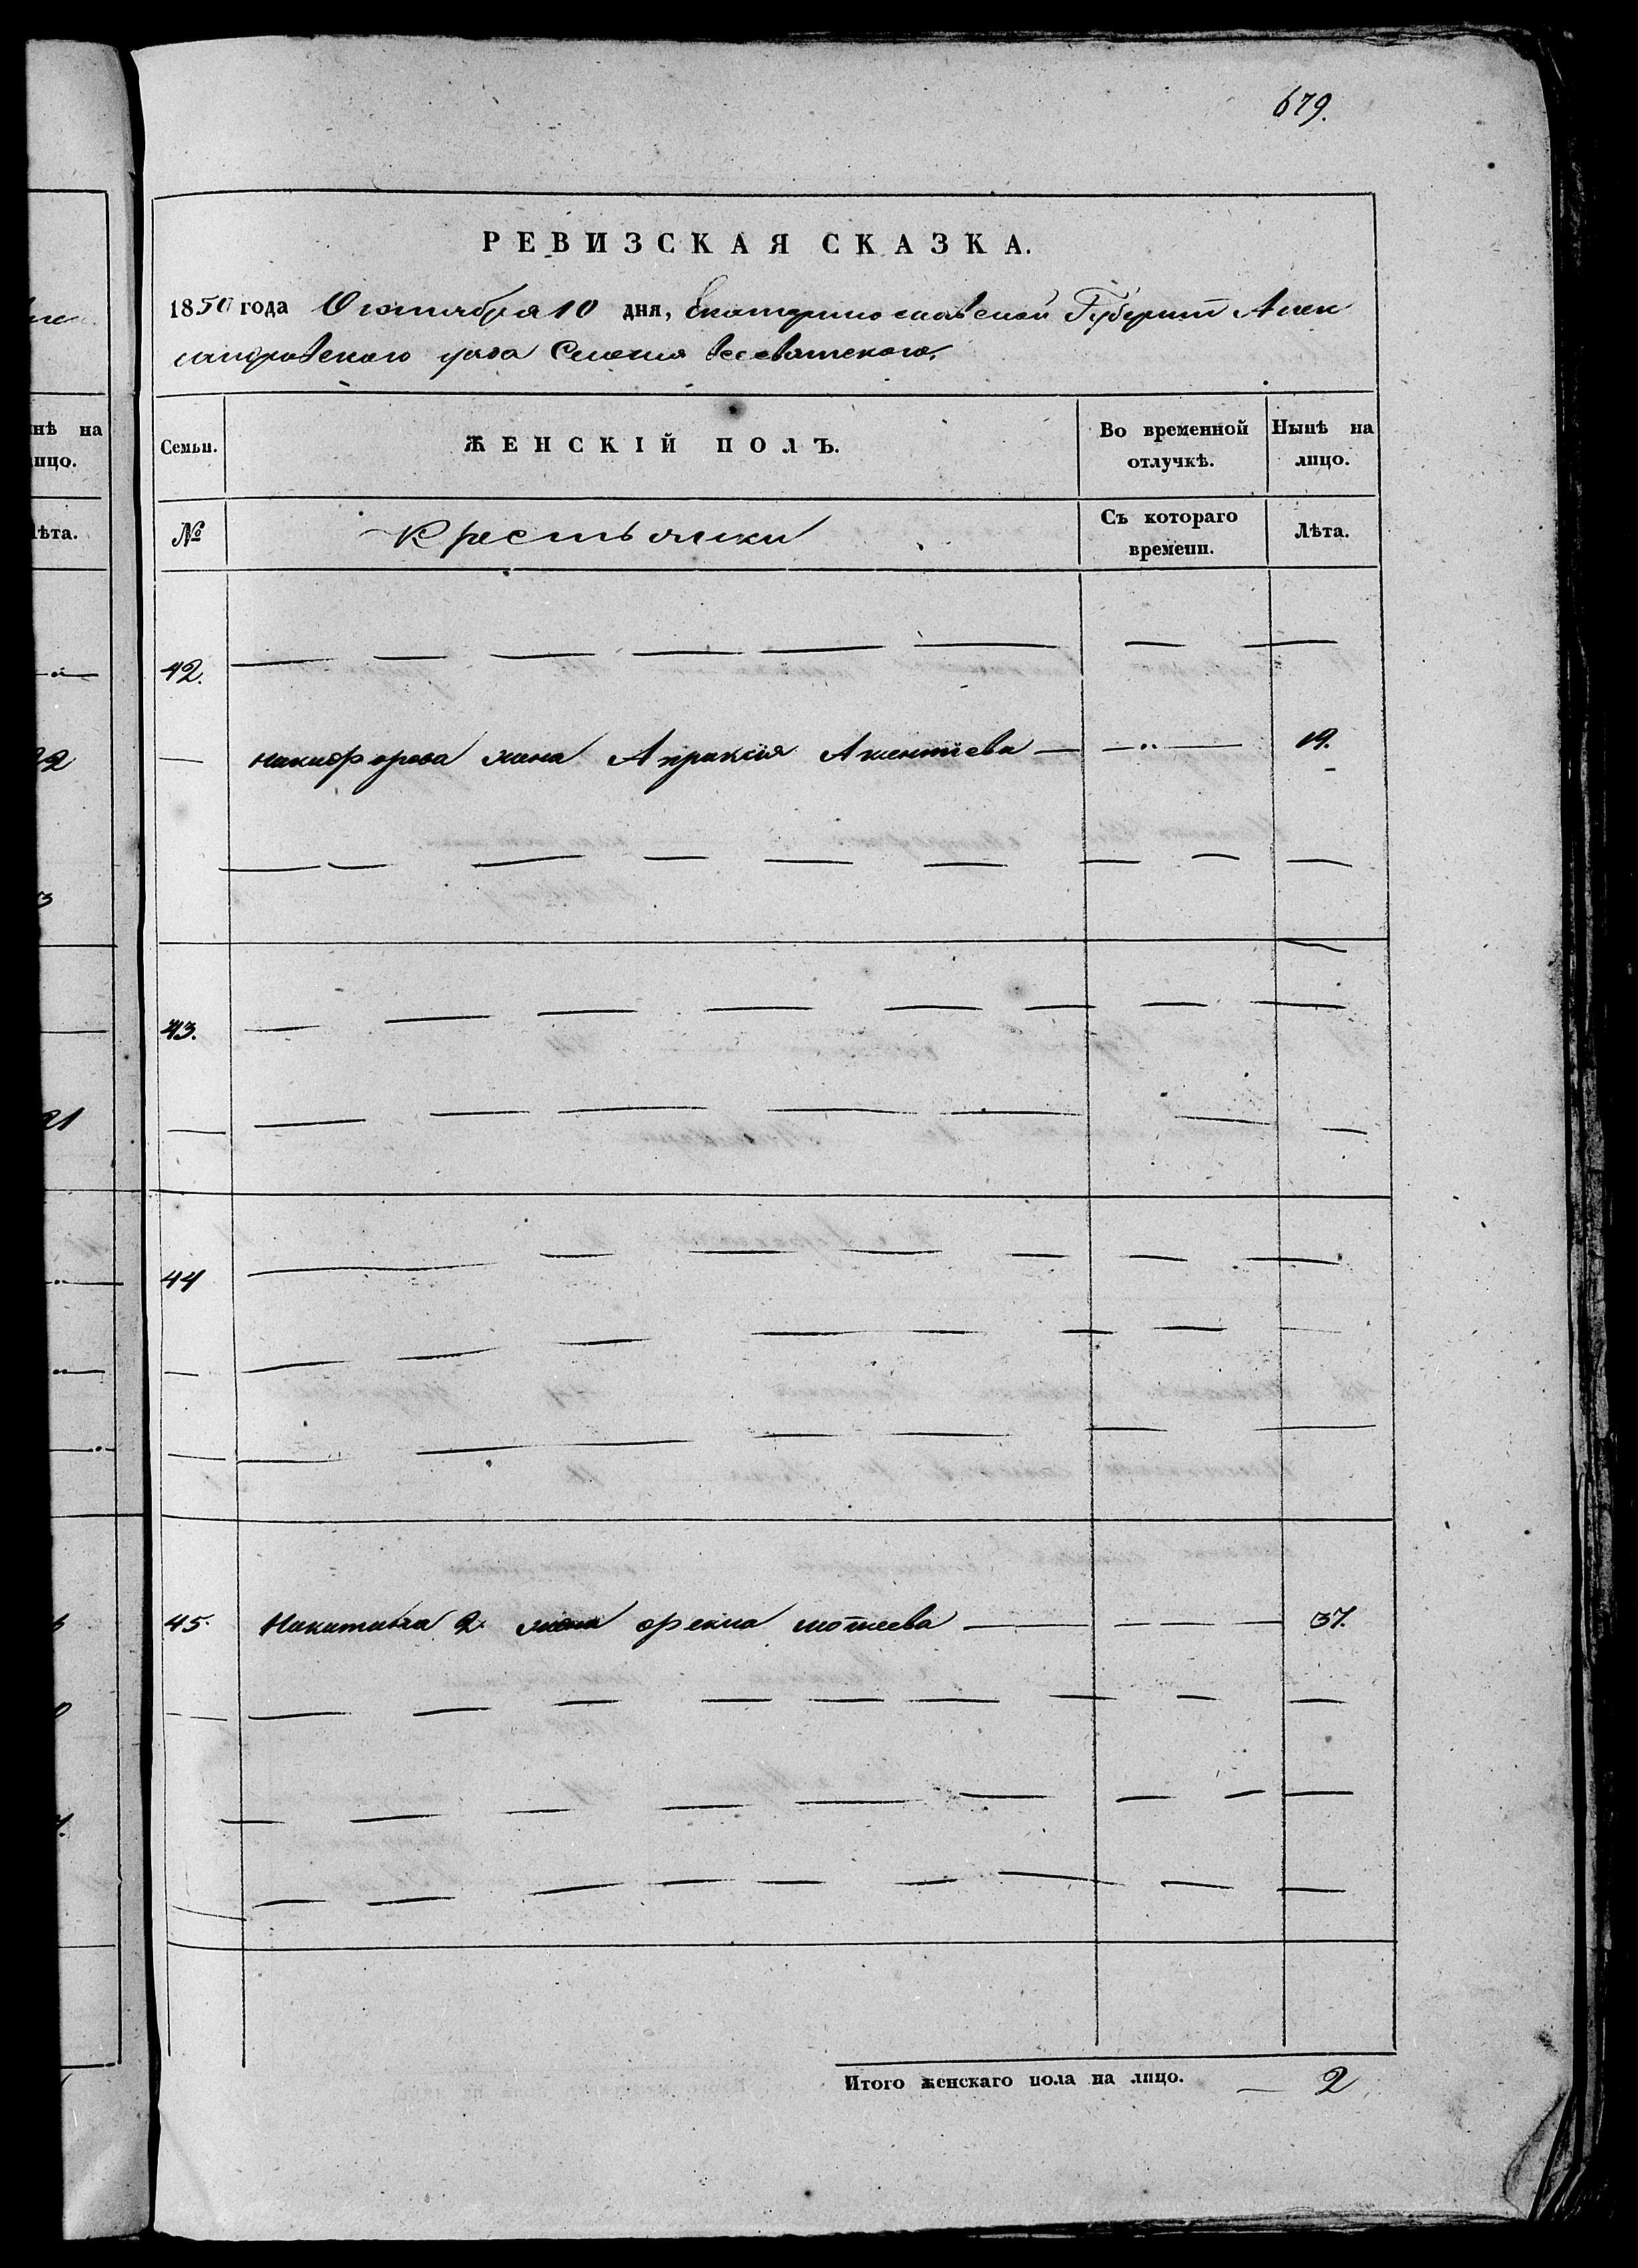 679.
РЕВИЗСКАЯ СКАЗКА.
1850 года Октября 10 дня, Екатеринославской Губернии Алек
сандровского уезда Селения Всесвятского.
Семьи.
ЖЕНСКІЙ ПОЛЪ.
Во временной отлучкѣ.
Нынѣ на лицо.
№
Крестьянки
Съ котораго времени.
Лѣта.
42.
никифорова жена Апраксия Акентиева 19.
43.
44
45. Никитина 2 жена фекла 37.
Итого женскаго пола на лицо. 2
нѣ на
лицо.
ѣта.
22
3
21